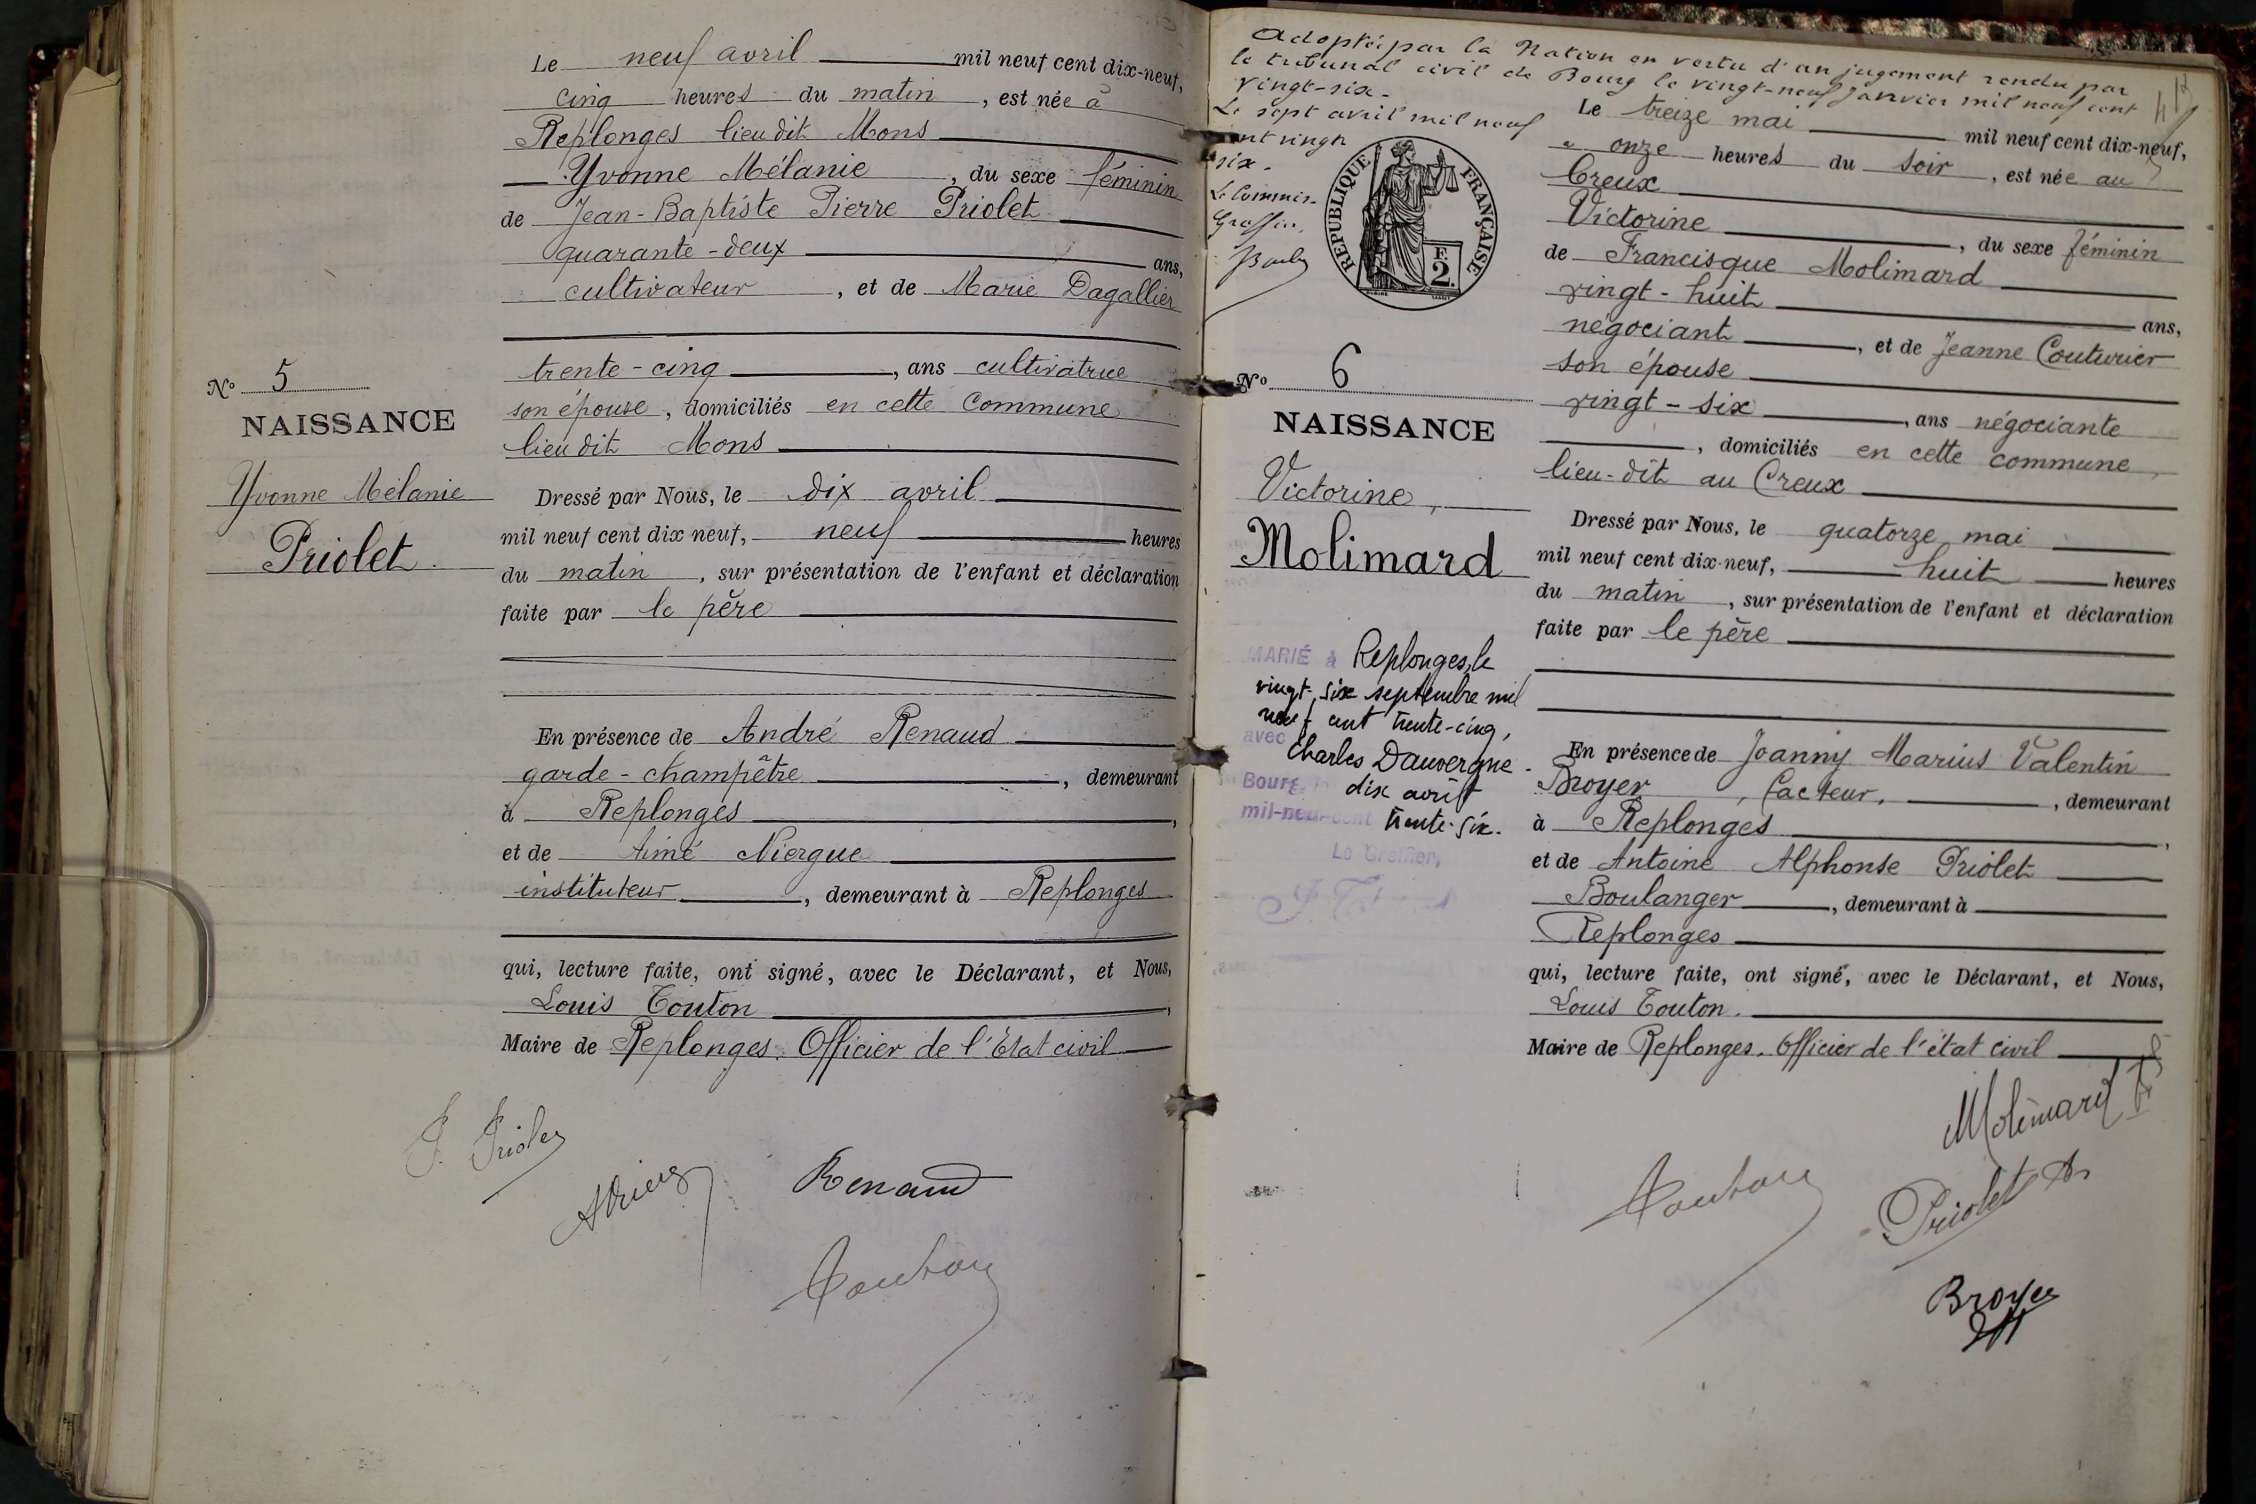 Le neuf avril mil neuf cent dix-neuf,
cinq heures du matin, est née à
Replonges lieu dit Mons
Yvonne Mélanie, du sexe féminin
de Jean-Baptiste Pierre Priolet
quarante-deux ans,
cultivateur, et de Marie Dagallier
trente-cinq, ans cultivatrice
son épouse, domiciliés en cette commune
lieu dit Mons
No 5
NAISSANCE
Yvonne Mélanie
Priolet.
Dressé par Nous, le dix avril
mil neuf cent dix neuf, neuf heures
du matin, sur présentation de l'enfant et déclaration
faite par le père
En présence de André Renaud
garde-champêtre, demeurant
à Replonges,
et de Aimé
instituteur, demeurant à Replonges
qui, lecture faite, ont signé, avec le Déclarant, et Nous,
Louis Touton,
Maire de Replonges, Officier de l'Etat civil
Renaud
Touton
Adoptée par la Nation en vertu d'un jugement rendu par
le tribunal civil de Bourg le vingt-neuf Janvier mil neuf cent
vingt-six.
Le sept avril mil neuf
cent vingt
six.
Le Commis-
Greffier,
REPUBLIQUE FRANÇAISE
F. 2.
No 6
NAISSANCE
Victorine,
Molimard
MARIÉ à Replonges, le
vingt-six septembre mil
neuf cent trente-cinq,
avec
Charles Dauvergne.
Bourg dix avril
mil-neuf-cent trente-six.
Le Greffier,
Le treize mai mil neuf cent dix-neuf,
à onze heures du soir, est née au
Creux
Victorine, du sexe féminin
de Francisque Molimard
vingt-huit ans,
négociant, et de Jeanne Couturier
son épouse
vingt-six, ans négociante
, domiciliés en cette commune,
lieu-dit au Creux
Dressé par Nous, le quatorze mai
mil neuf cent dix-neuf, huit heures
du matin, sur présentation de l'enfant et déclaration
faite par le père
En présence de Joanny Marius Valentin
Broyer, facteur, demeurant
à Replonges,
et de Antoine Alphonse Priolet
Boulanger, demeurant à
Replonges
qui, lecture faite, ont signé, avec le Déclarant, et Nous,
Louis Touton.
Maire de Replonges. Officier de l'état civil
Molimard
Touton
Priolet
Broyer